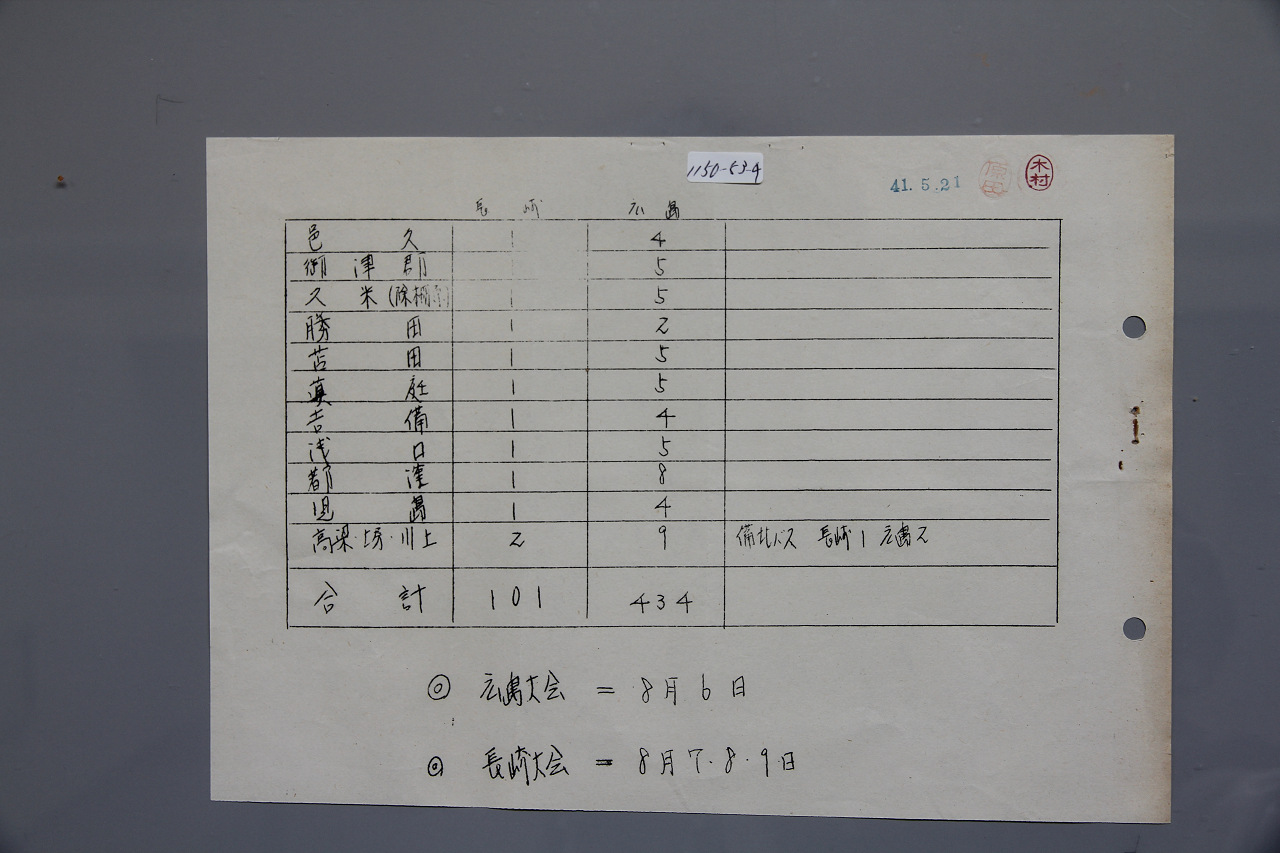 1150-53-4
41. 5. 21
原田
木村
長崎 広島
邑久 1 4
御津郡 5
久米(除柵原) 1 5
勝田 1 2
苫田 1 5
真庭 1 5
吉備 1 4
浅口 1 5
都窪 1 8
児島 1 4
高梁・上房・川上 2 9 備北バス 長崎1 広島2
合計 101 434
◎ 広島大会 = 8月6日
◎ 長崎大会 = 8月7・8・9・日